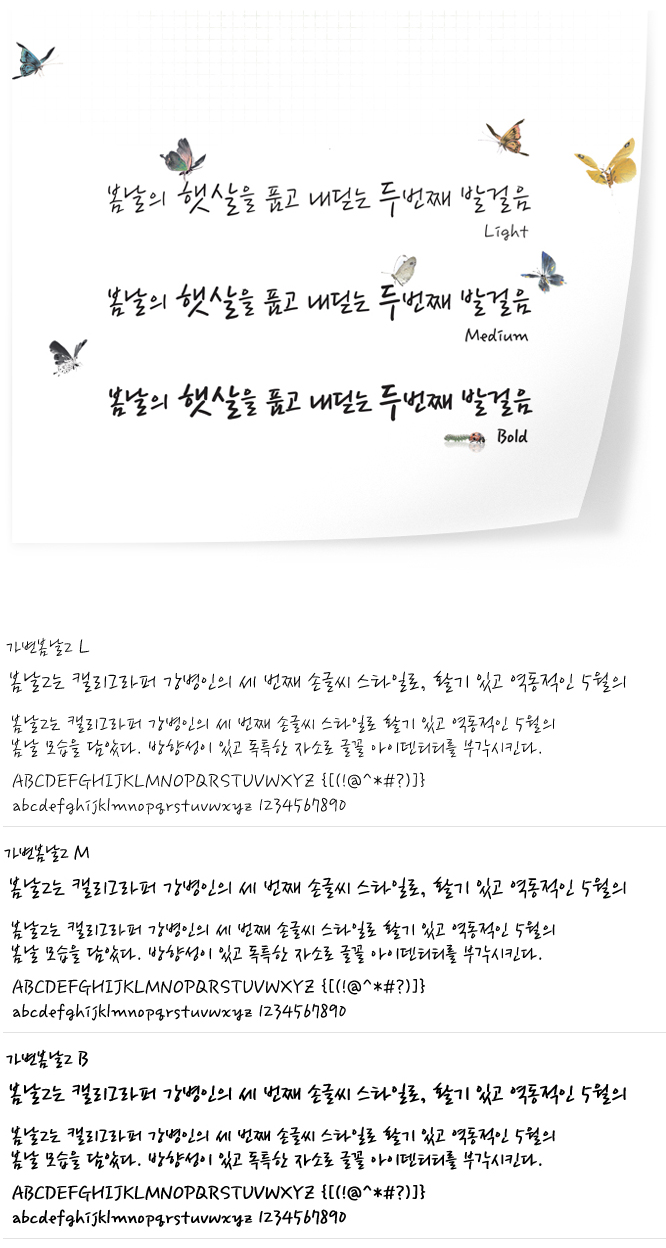 봄날의 햇살을 품고 내딛는 두번째 발걸음
Light
봄날의 햇살을 품고 내딛는 두번째 발걸음
Medium
봄날의 햇살을 품고 내딛는 두번째 발걸음
Bold
가변봄날2 L
봄날2는 캘리그라퍼 강병인의 세 번째 손글씨 스타일로, 활기 있고 역동적인 5월의
봄날2는 캘리그라퍼 강병인의 세 번째 손글씨 스타일로 활기 있고 역동적인 5월의
봄날 모습을 담았다. 방향성이 있고 독특한 자소로 글꼴 아이덴터티를 부각시킨다.
ABCDEFGHIJKLMNOPQRSTUVWXYZ {[(!@^*#?)]}
abcdefghijklmnopqrstuvwxyz 1234567890
가변봄날2 M
봄날2는 캘리그라퍼 강병인의 세 번째 손글씨 스타일로, 활기 있고 역동적인 5월의
봄날2는 캘리그라퍼 강병인의 세 번째 손글씨 스타일로 활기 있고 역동적인 5월의
봄날 모습을 담았다. 방향성이 있고 독특한 자소로 글꼴 아이덴터티를 부각시킨다.
ABCDEFGHIJKLMNOPQRSTUVWXYZ {[(!@^*#?)]}
abcdefghijklmnopqrstuvwxyz 1234567890
가변봄날2 B
봄날2는 캘리그라퍼 강병인의 세 번째 손글씨 스타일로, 활기 있고 역동적인 5월의
봄날2는 캘리그라퍼 강병인의 세 번째 손글씨 스타일로 활기 있고 역동적인 5월의
봄날 모습을 담았다. 방향성이 있고 독특한 자소로 글꼴 아이덴터티를 부각시킨다.
ABCDEFGHIJKLMNOPQRSTUVWXYZ {[(!@^*#?)]}
abcdefghijklmnopqrstuvwxyz 1234567890